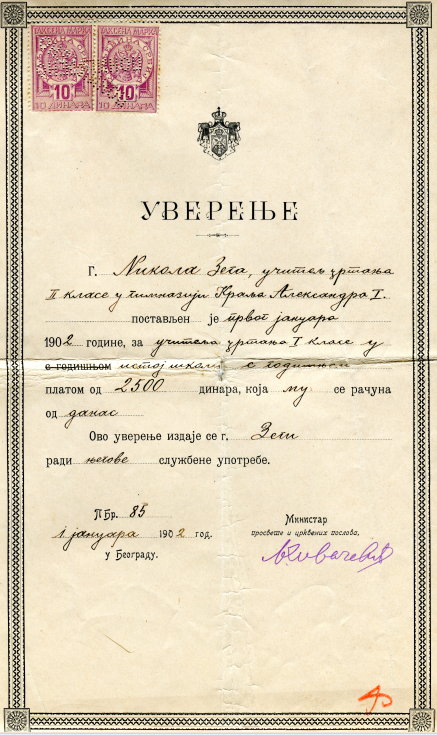 ТАКСЕНА МАРКА ТАКСЕНА МАРКА
10 10
10 ДИНАРА 10 ДИНАРА
УВЕРЕЊЕ
Г. Никола Зега, учитељ цртања
II класе у гимназији Краља Александра I.
постављен је првог јануара
1902 године, за учитеља цртања I класе у
с годишњом истој школи с годишњом
платом од 2500 динара, која му се рачуна
од данас
Ово уверење издаје се г. Зеги
ради његове службене употребе.
ПБр. 85
1 јануара 1902 год.
у Београду.
Министар
просвете и црквених послова,